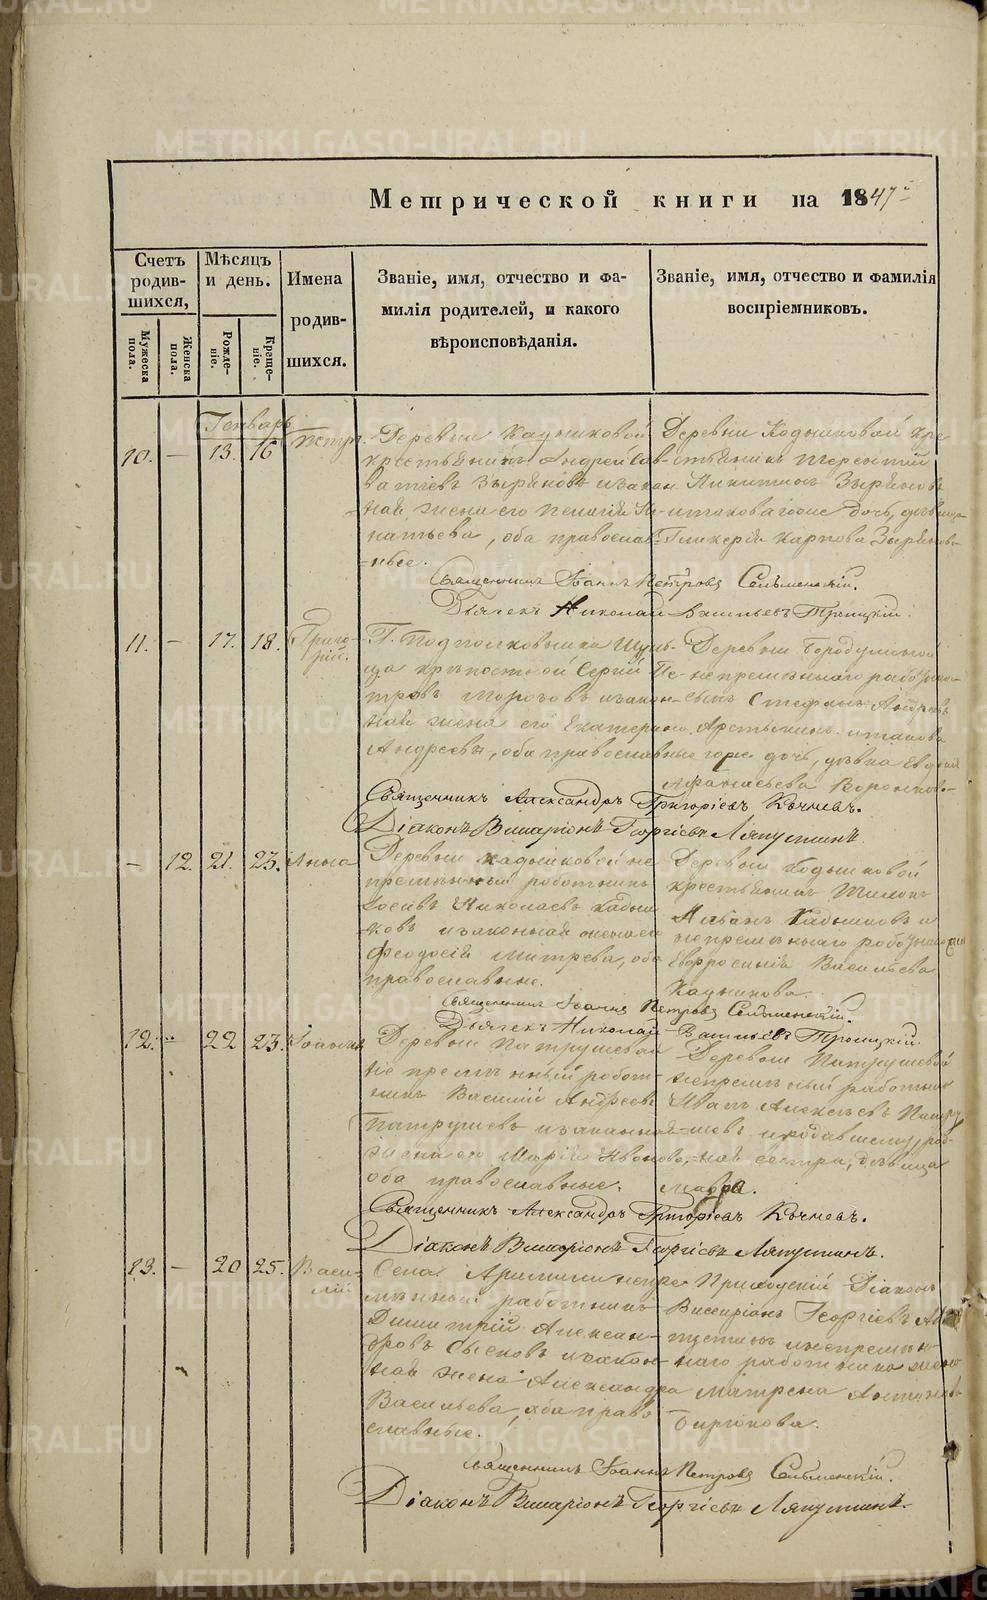 Метрической книги на 1847й
Счетъ родившихся,
Мѣсяцъ и день.
Имена родившихся.
Званіе, имя, отчество и фа-
милія родителей, и какого
вѣроисповѣданія.
Званіе, имя, отчество и фамилія
воспріемниковъ.
Мужеска пола.
Женска пола.
Рожденіе.
Крещеніе.
Генварь
10. — 13. 16 Петръ.
Деревни Кадниковой
крестьянинъ Андрей Сав-
ватіевъ Зыряновъ и закон
ная жена его Пелагія Иг-
натьева, оба православ-
ные.
Деревни Кадниковой кре
стьянинъ Терентій
Никитинъ Зыряновъ
и таковагоже дочь, дѣвица
Гликерія Карпова Зырянова
Священникъ Іоаннъ Петровъ Сельменскій.
Дьячекъ Николай Васильевъ Троицкій.
11. — 17. 18. Григо-
рій.
Г. Подполковника
крѣпостной Сергій Пе-
тровъ Морозовъ и закон-
ная жена его Екатерина
Андреева, оба православные
Деревни Бородулиной
непремѣннаго работни-
Стефанъ Андреевъ
и такова
гоже дочь, дѣвка Евдокія
Афанасьева
Священникъ Александръ Григоріевъ Кочневъ.
Діаконъ Виссаріонъ Георгіевъ Ляпустинъ.
— 12. 21. 23. Анна
Деревни Кадниковой не
премѣнный работникъ
Іосифъ Николаевъ Кадни
ковъ и законная жена его
Феодосія Дмитрева, оба
православные.
Деревни Кадниковой
крестьянинъ
Кадниковъ и
непремѣннаго работника
Евфросинія Васильева
Кадникова.
Священникъ Іоаннъ Петровъ Сельменскій.
Дьячекъ Николай Васильевъ Троицкій.
12. — 22 23. Іоаннъ
Деревни Патрушевой
не премѣнный работ-
никъ Василій Андреевъ
Патрушевъ и законная
жена его Марія Иванова,
оба православные.
Деревни Патрушевой
непремѣнный работникъ
Иванъ Алексѣевъ Патру
шевъ и
ная сестра, дѣвица
Мавра.
Священникъ Александръ Григоріевъ Кочневъ.
Діаконъ Виссаріонъ Георгіевъ Ляпустинъ.
13. — 20 25. Васи-
лій
Села Арамили непре
мѣнный работникъ
Димитрій Алексан-
дровъ Сысковъ и закон-
ная жена Александра
Васильева, оба право
славные.
Приходскій Діаконъ
Виссаріонъ Георгіевъ Ля
пустинъ и непремѣн-
наго работника жена
Матрена Антонова
Бирюкова.
Священникъ Іоаннъ Петровъ Сельменскій.
Діаконъ Виссаріонъ Георгіевъ Ляпустинъ.
METRIKI.GASO-URAL.RU